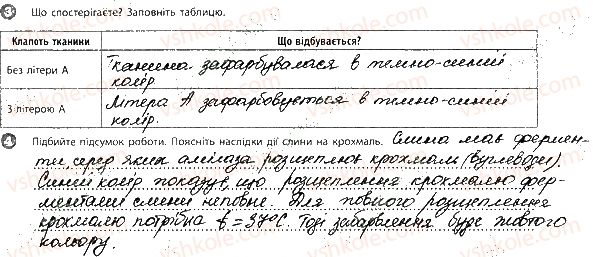 3 Що спостерігаєте? Заповніть таблицю.
Клапоть тканини Що відбувається?
Без літери А Тканина зафарбувалася в темно-синій
колір
З літерою А Літера А зафарбовується в темно-синій
колір.
4 Підбийте підсумок роботи. Поясніть наслідки дії слини на крохмаль. Слина має фермен-
ти серед яких амілаза розщеплює крохмаль (вуглеводи).
Синій колір показує, що розщеплення крохмалю фер-
ментами слини неповне. Для повного розщеплення
крохмалю потрібна t=37°C. Тоді забарвлення буде жовтого
кольору.